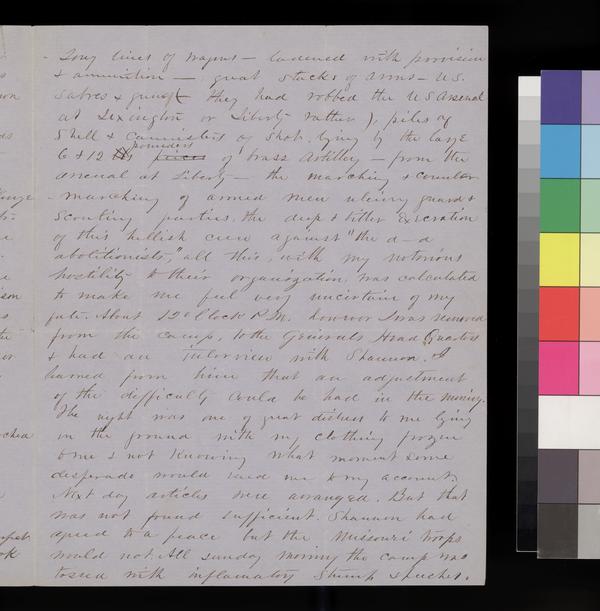 - Long lines of wagons - ladened with provision
& ammunition - great stacks of arms - U.S.
Sabres & guns ( they had robbed the U S Arsenal
at Lexington or Liberty rather ), piles of
Shell & Cannisters of shot, lying by the large
6 & 12 pounders pieces of brass Artillery - from the
arsenal at Liberty - the marching & counter
- marching of armed men reliev'g guard &
Scouting parties, the deep & bitter Execration
of this hellish crew against "the d--d
abolitionists," all this, with my notorious
hostility to their organization, was calculated
to make me feel very uncertain of my
fate. About 12 O'Clock P.M. however I was removed
from the camp, to the Generals Head Quarters
& had an interview with Shannon. I
learned from him that an adjustment
of the difficulty could be had in the morning.
The night was one of great distress to me lying
on the ground with my clothing frozen
to me & not knowing what moment some
desperado would send me to my account.
Next day articles were arranged. But that
was not found sufficient. Shannon had
agreed to a peace but the Missouri troops
would not. All Sunday morning the camp was
tossed with inflamatory Stump speeches.